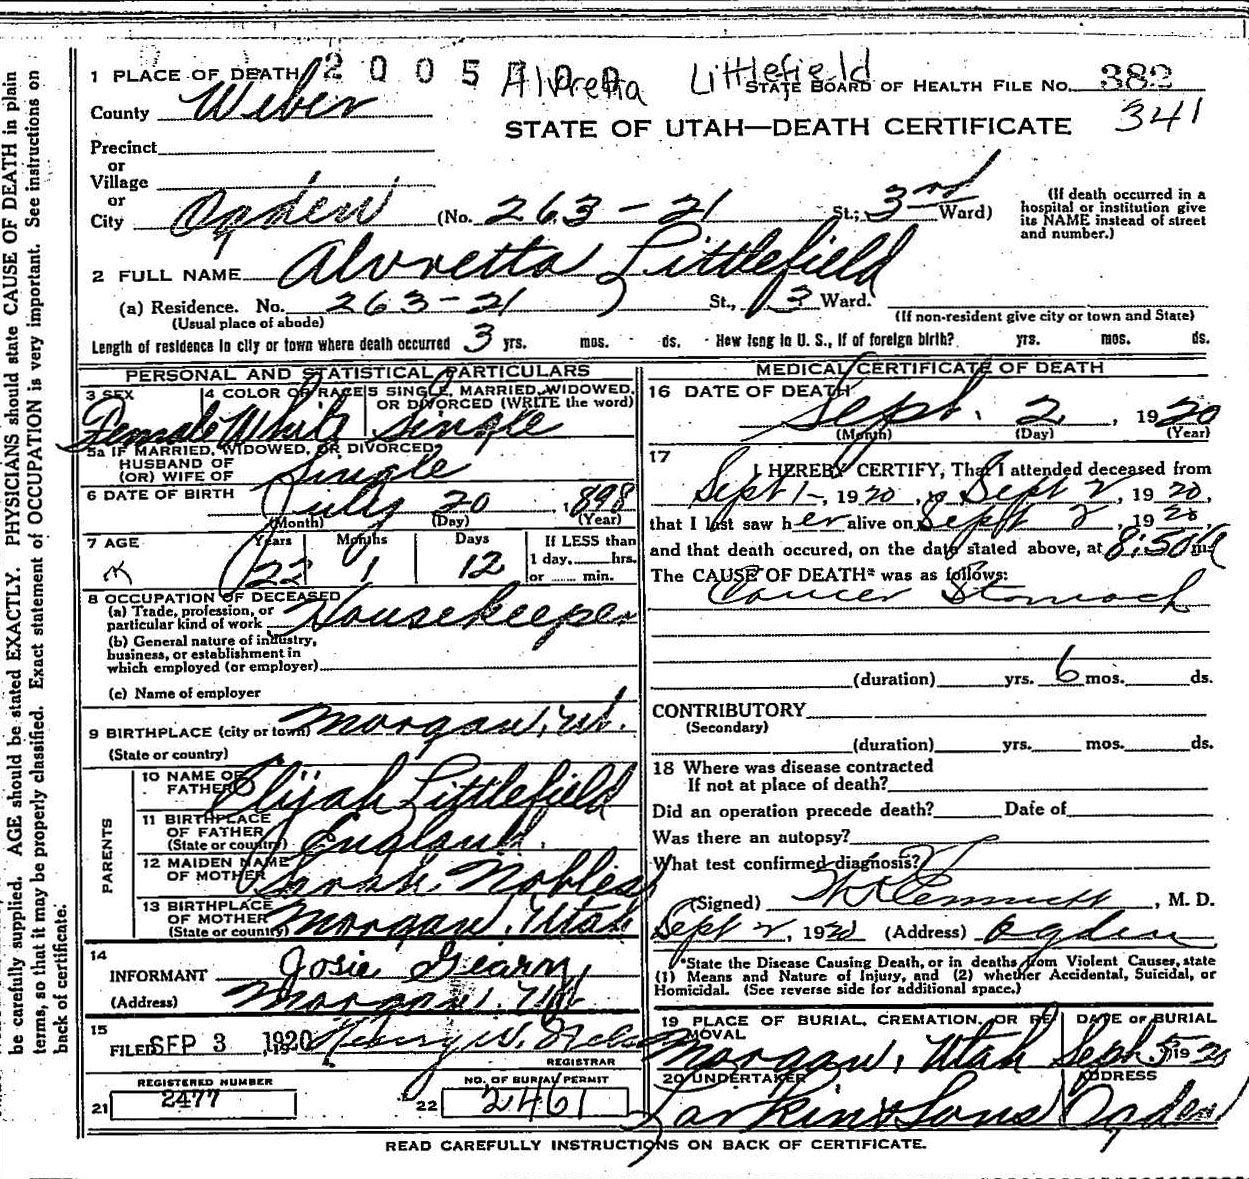 2 0 0 5
Alvretta Littlefield
1 PLACE OF DEATH
STATE BOARD OF HEALTH FILE NO. 382
County Weber
341
STATE OF UTAH—DEATH CERTIFICATE
Precinct
or
Village
or
City Ogden (No. 263-21 St.; 3rd Ward)
(If death occurred in a hospital or institution give its NAME instead of street and number.)
2 FULL NAME Alvretta Littlefield
(a) Residence. No. 263-21 St., 3 Ward.
(Usual place of abode)
(If non-resident give city or town and State)
Length of residence in city or town where death occurred 3 yrs. mos. ds. How long in U. S., if of foreign birth? yrs. mos. ds.
PERSONAL AND STATISTICAL PARTICULARS
3 SEX Female
4 COLOR OR RACE White
5 SINGLE, MARRIED, WIDOWED, OR DIVORCED (WRITE the word) Single
5a IF MARRIED, WIDOWED, OR DIVORCED
HUSBAND OF
(OR) WIFE OF Single
6 DATE OF BIRTH July 20, 1898
(Month) (Day) (Year)
7 AGE
Years Months Days
22 1 12
If LESS than
1 day, hrs.
or min.
8 OCCUPATION OF DECEASED
(a) Trade, profession, or
particular kind of work Housekeeper
(b) General nature of industry,
business, or establishment in
which employed (or employer)
(c) Name of employer
9 BIRTHPLACE (city or town) Morgan, Ut.
(State or country)
PARENTS
10 NAME OF
FATHER Elijah Littlefield
11 BIRTHPLACE
OF FATHER
(State or country) England.
12 MAIDEN NAME
OF MOTHER Sarah Nobles
13 BIRTHPLACE
OF MOTHER
(State or country) Morgan, Utah
14
INFORMANT Josie Gearn
(Address) Morgan, Ut.
15
FILED SEP 3 1920 Henry W.
REGISTRAR
REGISTERED NUMBER
21 2477
NO. OF BURIAL PERMIT
22 2461
MEDICAL CERTIFICATE OF DEATH
16 DATE OF DEATH
Sept. 2, 1920
(Month) (Day) (Year)
17
I HEREBY CERTIFY, That I attended deceased from
Sept 1-, 1920, to Sept 2, 1920,
that I last saw her alive on Sept 2, 1920,
and that death occured, on the date stated above, at 8:50 a m.
The CAUSE OF DEATH* was as follows:
Cancer Stomach
(duration) yrs. 6 mos. ds.
CONTRIBUTORY
(Secondary)
(duration) yrs. mos. ds.
18 Where was disease contracted
If not at place of death?
Did an operation precede death? Date of
Was there an autopsy?
What test confirmed diagnosis?
(Signed) , M. D.
Sept 2, 1920 (Address) Ogden
*State the Disease Causing Death, or in deaths from Violent Causes, state
(1) Means and Nature of Injury, and (2) whether Accidental, Suicidal, or
Homicidal. (See reverse side for additional space.)
19 PLACE OF BURIAL, CREMATION, OR REMOVAL
Morgan, Utah
DATE OF BURIAL
Sept. 5 1920
20 UNDERTAKER
Larkin & Sons
ADDRESS
Ogden
READ CAREFULLY INSTRUCTIONS ON BACK OF CERTIFICATE.
be carefully supplied. AGE should be stated EXACTLY. PHYSICIANS should state CAUSE OF DEATH in plain
terms, so that it may be properly classified. Exact statement of OCCUPATION is very important. See instructions on
back of certificate.